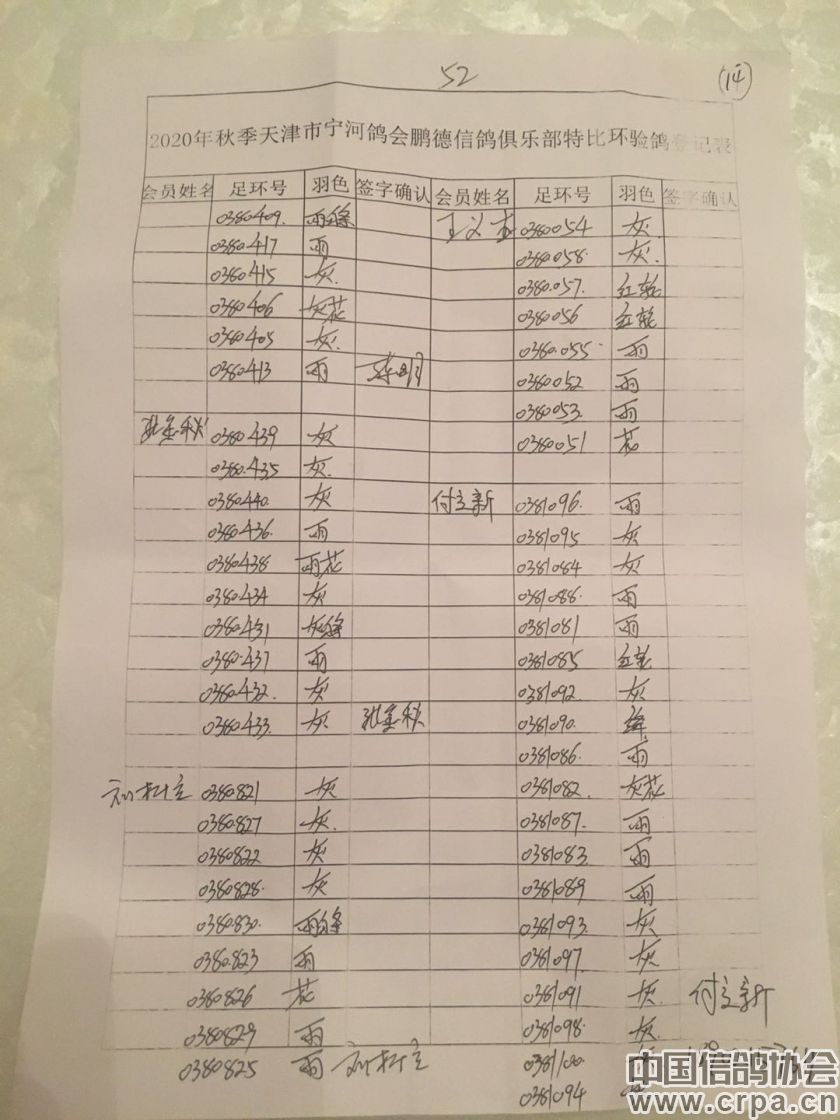 52
(14)
2020年秋季天津市宁河鸽会鹏德信鸽俱乐部特比环验鸽登记表
会员姓名 足环号 羽色 签字确认 会员姓名 足环号 羽色 签字确认
0380409 雨绛 王义 0380054 灰
0380417 雨 0380058 灰
0380415 灰 0380057 红轮
0380406 灰花 0380056 红轮
0380405 灰 0380055 雨
0380413 雨 0380052 雨
0380053 雨
0380439 灰 0380051 花
0380435 灰
0380440 灰 付立新 0381096 雨
0380436 雨 0381095 灰
0380438 雨花 0381084 灰
0380434 灰 0381088 雨
0380431 灰绛 0381081 雨
0380437 雨 0381085 红轮
0380432 灰 0381092 灰
0380433 灰 张金秋 0381090 绛
0381086 雨
0380821 灰 0381082 灰花
0380827 灰 0381087 雨
0380822 灰 0381083 雨
0380828 灰 0381089 雨
0380830 雨绛 0381093 灰
0380823 雨 0381097 灰
0380826 花 0381091 灰 付立新
0380829 雨 0381098 灰
0380825 雨 0381100
0381094
中国信鸽协会
www.crpa.cn